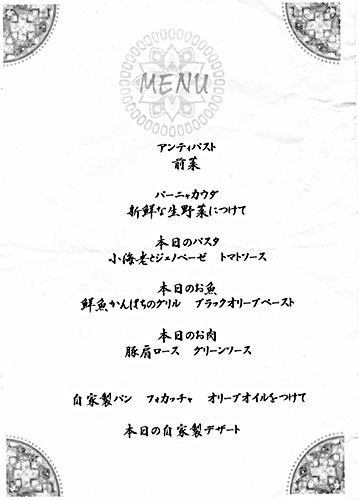 MENU
アンティパスト
前菜
バーニャカウダ
新鮮な生野菜につけて
本日のパスタ
小海老とジェノベーゼ　トマトソース
本日のお魚
鮮魚かんぱちのグリル　ブラックオリーブペースト
本日のお肉
豚肩ロース　グリーンソース
自家製パン　フォカッチャ　オリーブオイルをつけて
本日の自家製デザート